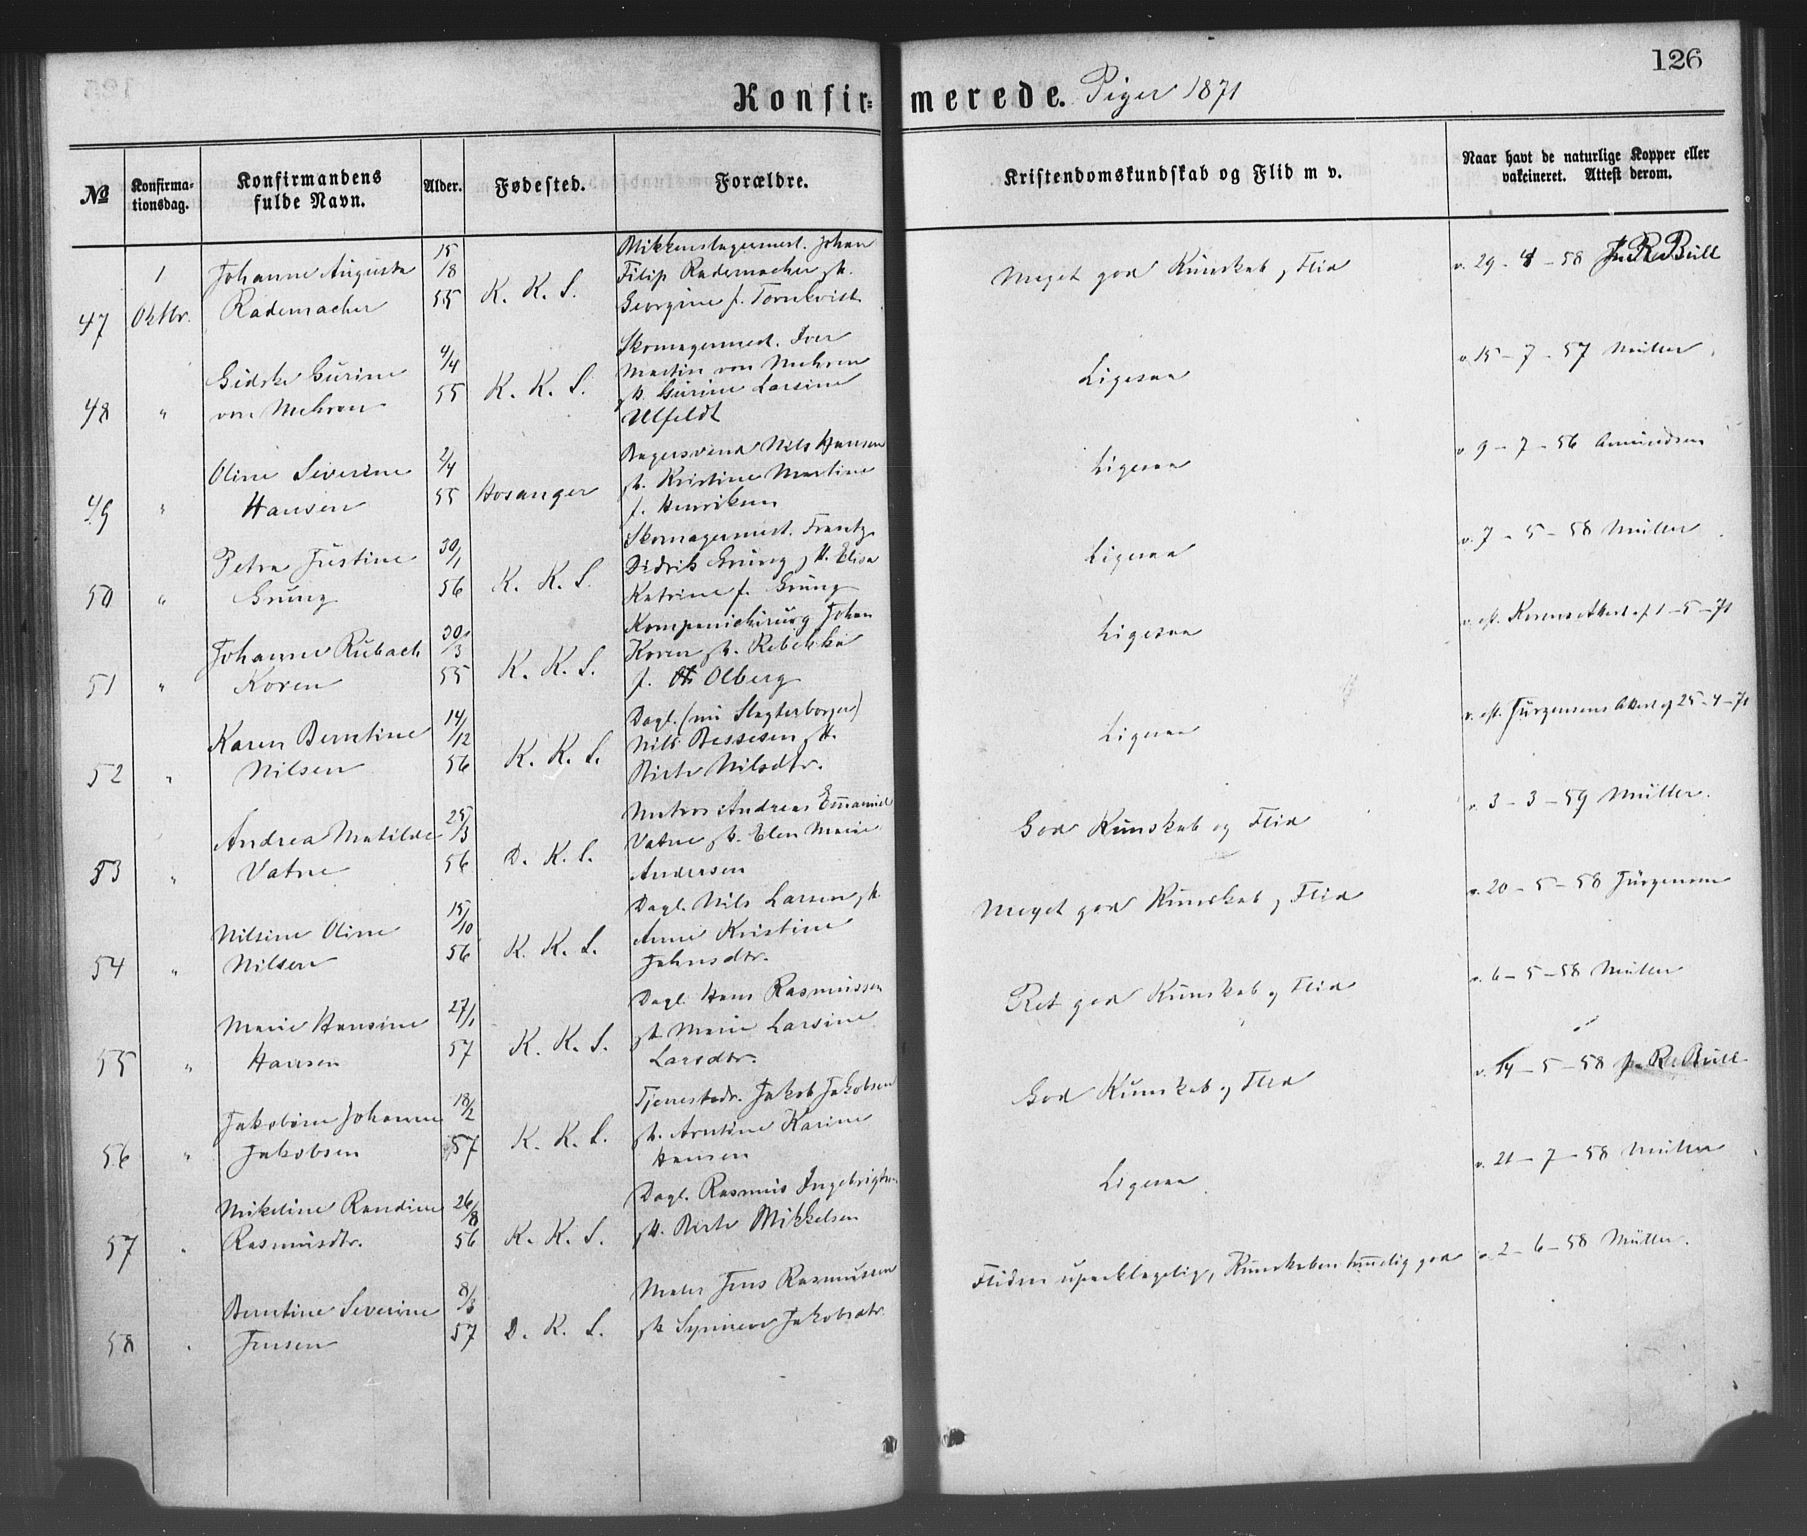 126
Konfirmerede. Piger 1871
No
Konfirma-
tionsdag.
Konfirmandens
fulde Navn.
Alder.
Fødested.
Forældre.
Kristendomskundskab og Flid m v.
Naar havt de naturlige Kopper eller
vakcineret. Attest derom.
47
1
Oktbr.
Johanne Augusta
Rademacher
15/8
55
K. K. S.
Blikkenslagermest. Johan
Filip Rademacher og H.
Georgine f. Tornkvist
Meget god Kunskab og Flid
v. 29 - 4 - 58 J. R. Bull
48
"
Gidske Gurine
von Mehren
4/4
55
K. K. S.
Skomagermest. Iver
Martin von Mehren
og H. Gurine Larsine
Ulfeldt
Ligesaa
v. 15 - 7 - 57 Müller
49
"
Oline Severine
Hansen
2/4
55
Hosanger
Bagersvend Nils Hansen
og H. Kristine Martine
f. Henriksen
Ligesaa
v. 9 - 7 - 56 Amundsen
50
"
Petra Justine
Grung
30/1
56
K. K. S.
Skomagermest. Frantz
Didrik Grung og H. Elisa
Katrine f. Grung
Ligesaa
v. 7 - 5 - 58 Müller
51
"
Johanne Rubach
Koren
30/3
55
K. K. S.
Kompanichirurg Johan
Koren og H. Rebekka
f. Olberg
Ligesaa
v. eft. Korens Attest af 1 - 5 - 71
52
"
Karen Berntine
Nilsen
14/12
56
K. K. S.
Dagl. (nu Slagterborger)
Nils Bessesen og H.
Birte Nilsdtr.
Ligesaa
v. eft. Jürgensens Attest af 25 - 4 - 71
53
"
Andrea Matilde
Vatne
25/3
56
D. K. S.
Matros Andreas Emanuel
Vatne og H. Elen Marie
Andersen
God Kunskab og Flid
v. 3 - 3 - 59 Müller.
54
"
Nilsine Oline
Nilsen
15/10
56
K. K. S.
Dagl. Nils Larsen og H.
Anne Kristine
Johnsdtr.
Meget god Kunskab og Flid
v. 20 - 5 - 58 Jürgensen
55
"
Marie Hansine
Hansen
27/1
57
K. K. S.
Dagl. Hans Rasmussen
og H. Marie Larsine
Larsdtr.
Ret god Kunskab og Flid
v. 6 - 5 - 58 Müller
56
"
Jakobine Johanne
Jakobsen
18/2
57
K. K. S.
Tjenestedr. Jakob Jakobsen
og H. Arntine Karine
Hansen
God Kunskab og Flid
v. 14 - 5 - 58 J. R. Bull
57
"
Mikeline Randine
Rasmusdtr.
26/8
56
K. K. S.
Dagl. Rasmus Ingebrigtsen
og H. Birte Mikkelsen
Ligesaa
v. 21 - 7 - 58 Müller
58
"
Berntine Severine
Jensen
8/3
57
D. K. S.
Maler Jens Rasmussen
og H. Synneve Jakobsdtr.
Fliden upaaklagelig, Kunskaben temelig god
v. 2 - 6 - 58 Müller.